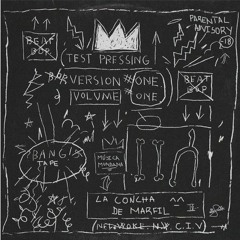 PARENTAL
ADVISORY
-18
BEAT
BOP
TEST PRESSING
VERSION #ONE
VOLUME #ONE
BEAT
BOP
BANG!
TAPE
MÚSICA
MUNDANA
LA CONCHA
DE MARFIL
N.Y. C.I.V)